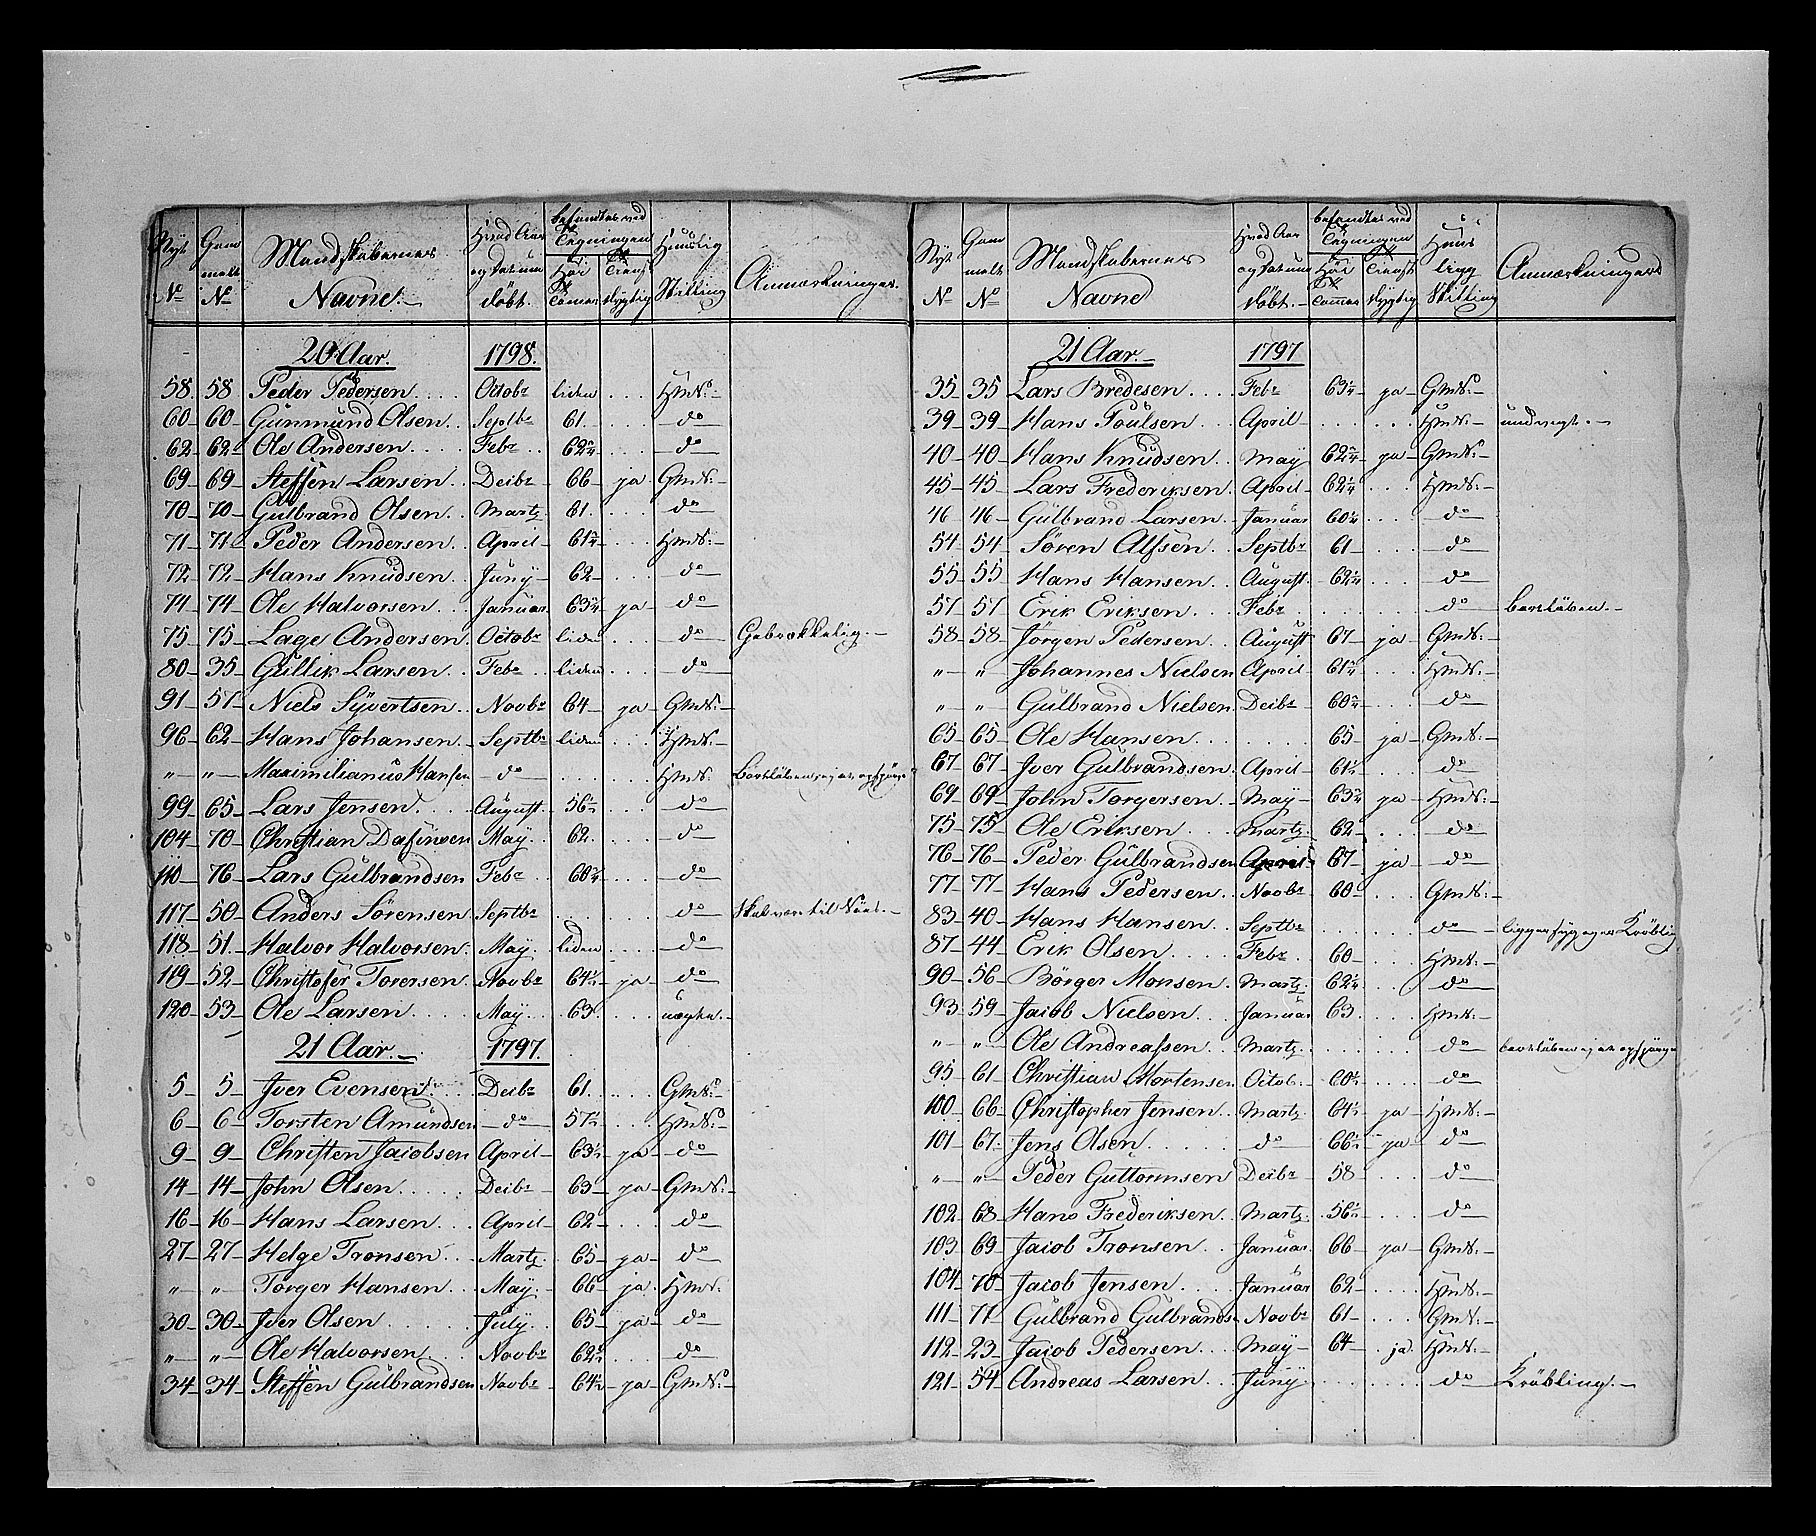 Nyt No | Gammelt No | Mandskabernes Navne. | Hvad Aar og Datum døbt. | befundtes ved Tegningen: Høi Tommer | Tienst dygtig | Huuslig Stilling | Anmærkninger.
20 Aar. 1798.
58. 58 Peder Pedersen .... Octobr liden ... Hmds:
60 - 60 - Gunmund Olsen .. Septbr 61. .... do
62 - 62 - Ole Andersen .... Febr .. 62 3/4 ... do
69 - 69 - Steffen Larsen .. Deibr - 66 - ja - Gmds: -
70 - 70 - Gülbrand Olsen .. Martz. 61. ... do
71 - 71 - Peder Andersen .. April - 61 3/4 ... Hmds: -
72 - 72 - Hans Knudsen .. Juny - 62 - ... do
74 - 74 - Ole Halvorsen ... Januar. 63 3/4 ja - do
75 - 75 - Lage Andersen. Octobr lid.. ... do Gebrækkelig. -
80 - 35 - Gullik Larsen ... Febr .. liden ... do
91 - 57 - Niels Syvertsen .. Novbr 64 - ja - Gmds: -
96 - 62 - Hans Johansen .. Septbr liden ... Hmds: -
" - " - Maximilianus Hansen - do - .... Hmds:
99 - 65 - Lars Jensen .... August. 56 1/2 ... do
104 - 70 - Christian May .. 62. ... do
110 - 76 - Lars Gülbrandsen Febr .. 60 3/4 ... do
117 - 50 - Anders Sörensen Septbr .... do skal være til Søes. -
118 - 51 - Halvor Halvorsen. May. liden ... do
119 - 52 - Christofer Torersen. Novbr 64 1/2 ja - do
120 - 53 - Ole Larsen ..... May .. 63. ...
21 Aar. - 1797.
5 - 5 - Jver Evensen ... Deibr 61. ... Gmds: -
6 - 6 - Torsten Amundsen - do - 57 1/2 ... Hmds: -
9 - 9 - Christen Jacobsen April - 63 1/2 ja - do
14 - 14 - John Olsen ..... Deibr - 63 - ja - Gmds: -
16 - 16 - Hans Larsen ... April - 62 - ... do
27 - 27 - Helge Tronsen ... Martz. 65 - ja - do
" - " - Torger Hansen ... May. - 66 - ja - Hmds:
30 - 30 - Jver Olsen ...... July .. 65 - ja - do
" - " - Ole Halvorsen ... Novbr 62 1/2 ... do
34 - 34 - Steffen Gülbrandsen Novbr 64 1/2 - ja - Gmds: -
Nyt No | Gammelt No | Mandskabernes Navne | Hvad Aar og Datum døbt. - | befundtes ved Tegningen: Høi Tommer | Tienst dygtig | Huuslig Stilling | Anmærkninger
21 Aar. - 1797
35 - 35 Lars Bredesen .... Febr 63 1/4 - ja - Gmds: -
39 - 39 Hans Poülsen ... April - ...... Hmds: - undvegt. -
40 - 40 - Hans Knudsen .. May 62 3/4 - ja - Gmds: -
45 - 45 - Lars Frederiksen. April - 62 1/4 ... Hmds: -
46 - 46 - Gülbrand Larsen .. Januar 60 1/4 ... do
54 - 54 - Sören Alfsen .. Septbr 61 - ... do
55 - 55 Hans Hansen .. August. 62 1/4 ... do
57 - 57 Erik Eriksen .. Febr ...... do bortløben. -
58 - 58 Jörgen Pedersen .. August 67 - ja - Gmds: -
" - " Johannes Nielsen April - 61 3/4 ... Hmds: -
" - " - Gülbrand Nielsen. Deibr - 60 3/4 ... do
65 - 65 - Ole Hansen ........ 65 - ja - Gmds: -
67 - 67 - Jver Gülbrandsen. April - 61 1/2 ... do
69 - 69 - John Torgersen .. May - 63 3/4 ja - Hmds: -
75 - 75 - Ole Eriksen .... Martz. 62 - ... do
76 - 76 - Peder Gülbrandsen April 67 - ja - do
77 - 77 - Hans Pedersen .. Novbr 60 - ... Gmds: -
83 - 40 - Hans Hansen .. Septbr ...... do ligger syg
87 - 44 - Erik Olsen ..... Febr . 60 - ... Hmds: -
90 - 56 - Börger Monsen . Martz. 62 1/4 ... do
93 - 59 - Jacob Nielsen ... Januar 63. ... Hmds: -
" - " - Ole Andreassen . Martz. ...... do
95 - 61 - Christian Mortensen Octob. 60 1/2 ... do
100 - 66 - Christopher Jensen .. Martz 64 1/2 ja - Hmds: -
101 - 67 - Jens Olsen ...... do 66 1/2 - ja - do
" - " - Peder Guttormsen Deibr 58 - ... do
102 - 68 - Hans Frederiksen. Martz. 56 1/2 ... do
103 - 69 - Jacob Tronsen .. Januar. 66 - ja - Gmds: -
104 - 70 - Jacob Jensen .... Januar 62 - ... Hmds: -
111 - 71 - Gülbrand Gülbrands- Novbr 61 - ... Gmds: -
112 - 23 - Jacob Pedersen ... May - 64 - ja Hmds: -
121 - 54 - Andreas Larsen ... Juny ...... do Kröbling. -